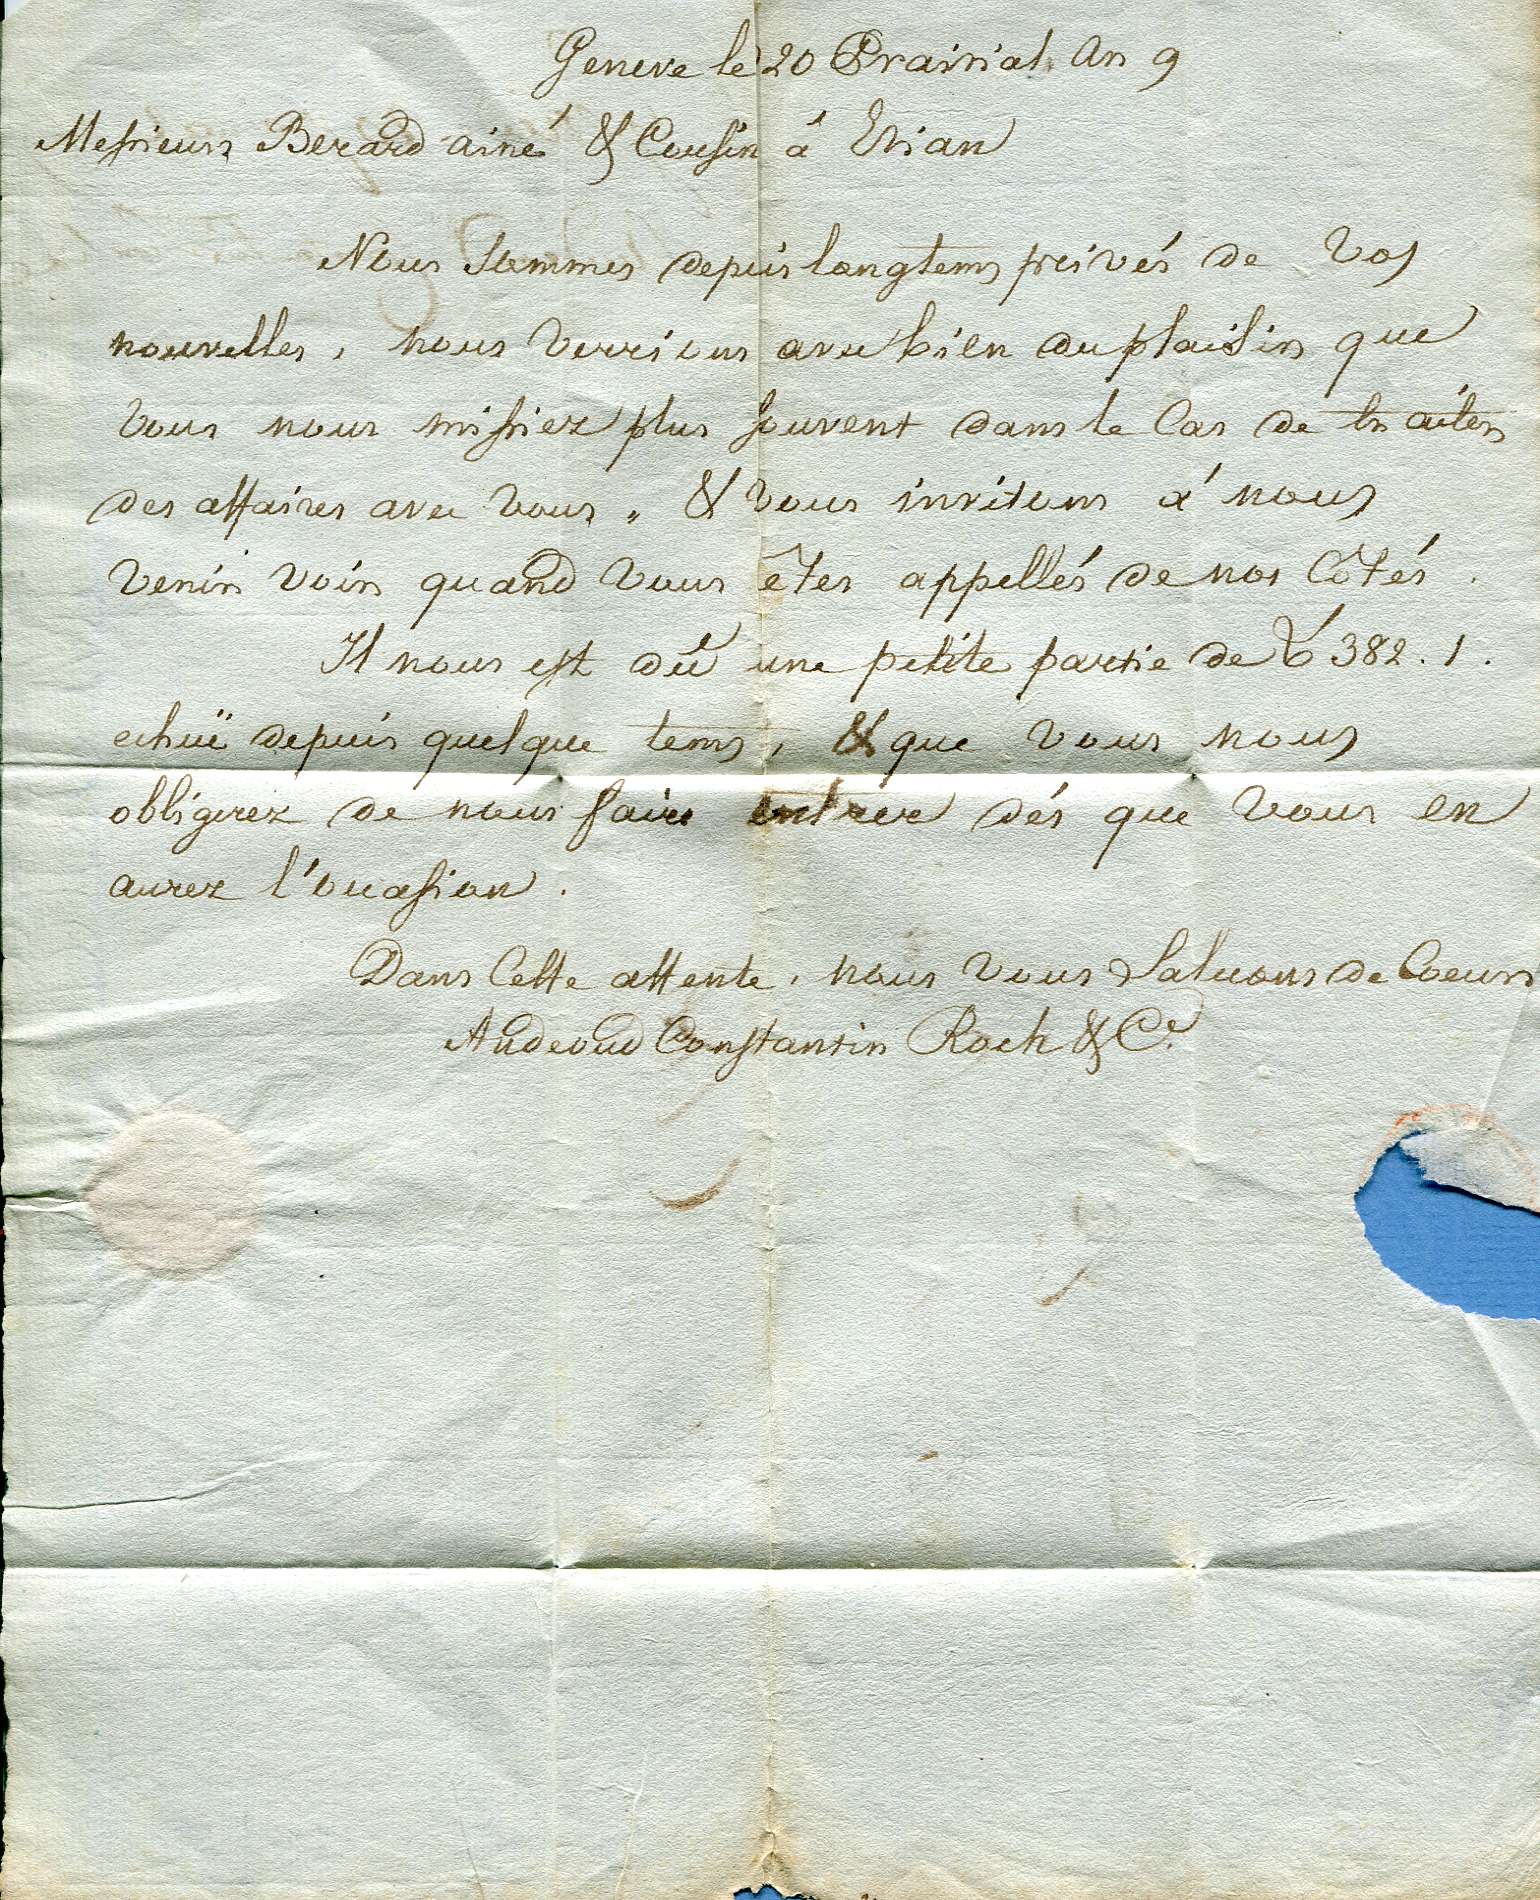 Geneve le 20 Prairial An 9
Messieurs Berard ainé & Cousin à Evian
Nous sommes depuis longtems privés de vos
nouvelles, nous verrions avec bien du plaisir que
vous nous missiez plus souvent dans le Cas de traiter
des affaires avec vous, & vous invitons à nous
venir voir quand vous êtes appellés de nos Côtés.
Il nous est dû une petite partie de ₶ 382. 1.
echuë depuis quelque tems, & que vous nous
obligerez de nous faire entrer dés que vous en
aurez l'occasion.
Dans Cette attente, nous vous Saluons de Coeur
Audeoud Constantin Roch & Ce.